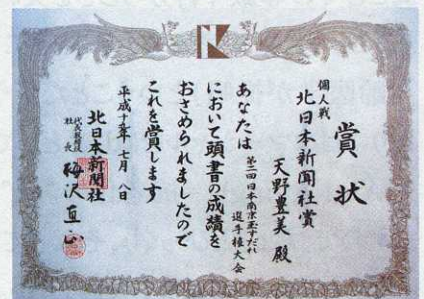 賞状
個人戦
北日本新聞社賞
天野豊美 殿
あなたは第二回日本南京玉すだれ
選手権大会
において頭書の成績を
おさめられましたので
これを賞します
平成十五年七月八日
北日本新聞社
代表取締役
社長 梅沢直正